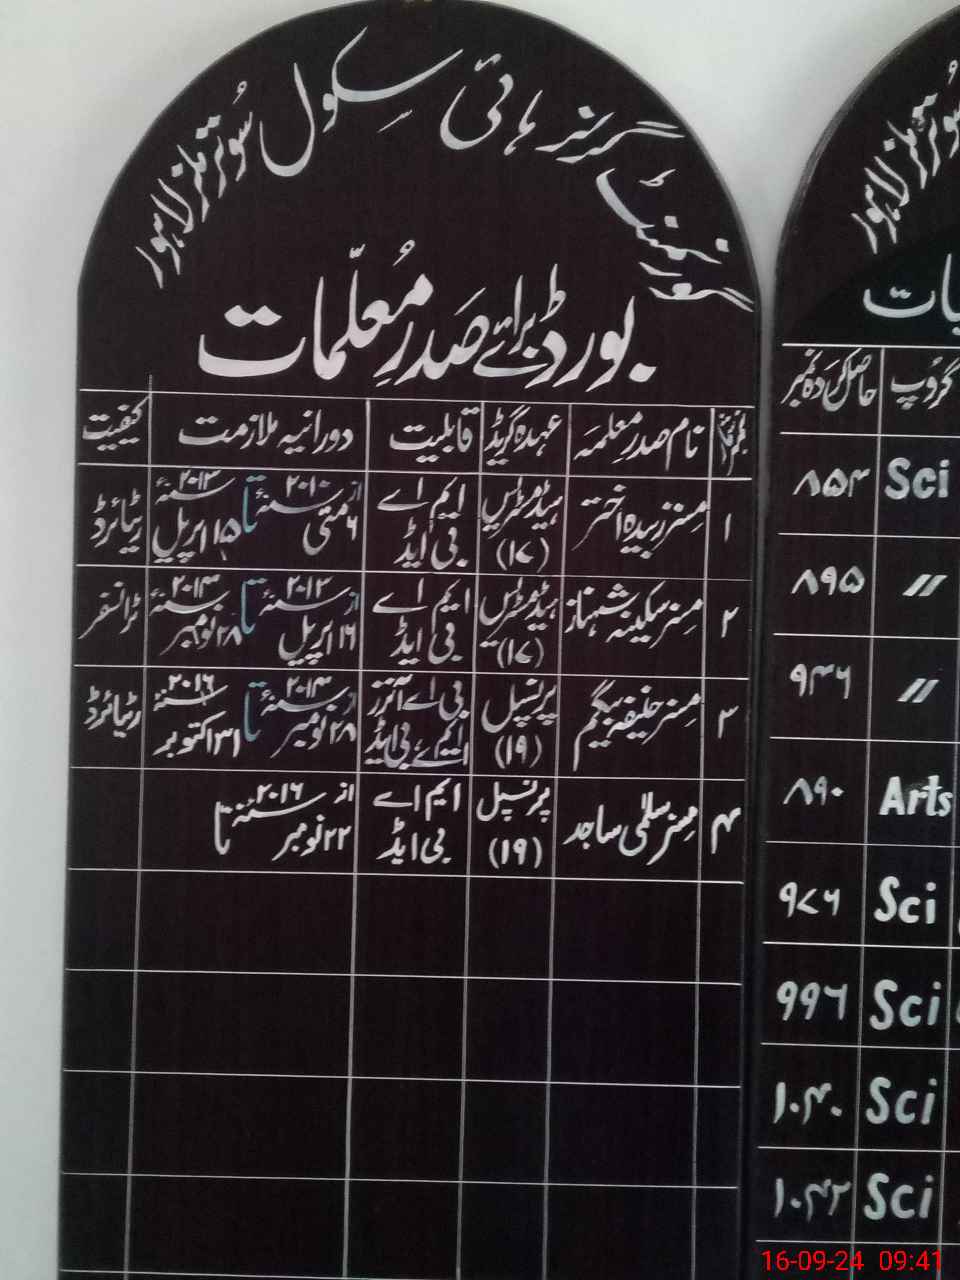 گورنمنٹ گرلز ہائی سکول سوتر ملز لاہور
بورڈ برائے صدر معلمات
نمبر شمار نام صدر معلمہ عہدہ گریڈ قابلیت دورانیہ ملازمت کیفیت
۱ مسز زبیدہ اختر ہیڈ مسٹریس (۱۷) ایم اے بی ایڈ از ۶ مئی ۲۰۱۰ء تا ۱۵ اپریل ۲۰۱۳ء ریٹائرڈ
۲ مسز سکینہ شہناز ہیڈ مسٹریس (۱۷) ایم اے بی ایڈ از ۱۶ اپریل ۲۰۱۳ء تا ۲۸ نومبر ۲۰۱۴ء ٹرانسفر
۳ مسز حنیفہ بیگم پرنسپل (۱۹) بی اے آنرز ایم اے بی ایڈ از ۲۸ نومبر ۲۰۱۴ء تا ۳۱ اکتوبر ۲۰۱۶ء ریٹائرڈ
۴ مسز سلمٰی ساجد پرنسپل (۱۹) ایم اے بی ایڈ از ۲۲ نومبر ۲۰۱۶ء تا
سوتر ملز لاہور
گروپ حاصل کردہ نمبر
Sci ۸۵۴
// ۸۹۵
// ۹۴۶
Arts ۸۹۰
Sci ۹۷۶
Sci ۹۹۶
Sci ۱۰۴۰
Sci ۱۰۴۳
16-09-24 09:41